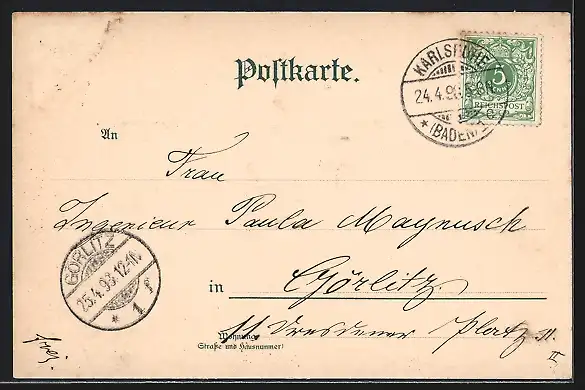 Postkarte.
KARLSRUHE
24.4.98.
(BADEN)
5
REICHSPOST
An
Frau
Ingenieur Paula Maynusch
GÖRLITZ
25.4.98. 12-1N.
* 1 f
in Görlitz
11. Dresdener Platz 11.
Wohnung
(Straße und Hausnummer)
II
frei.